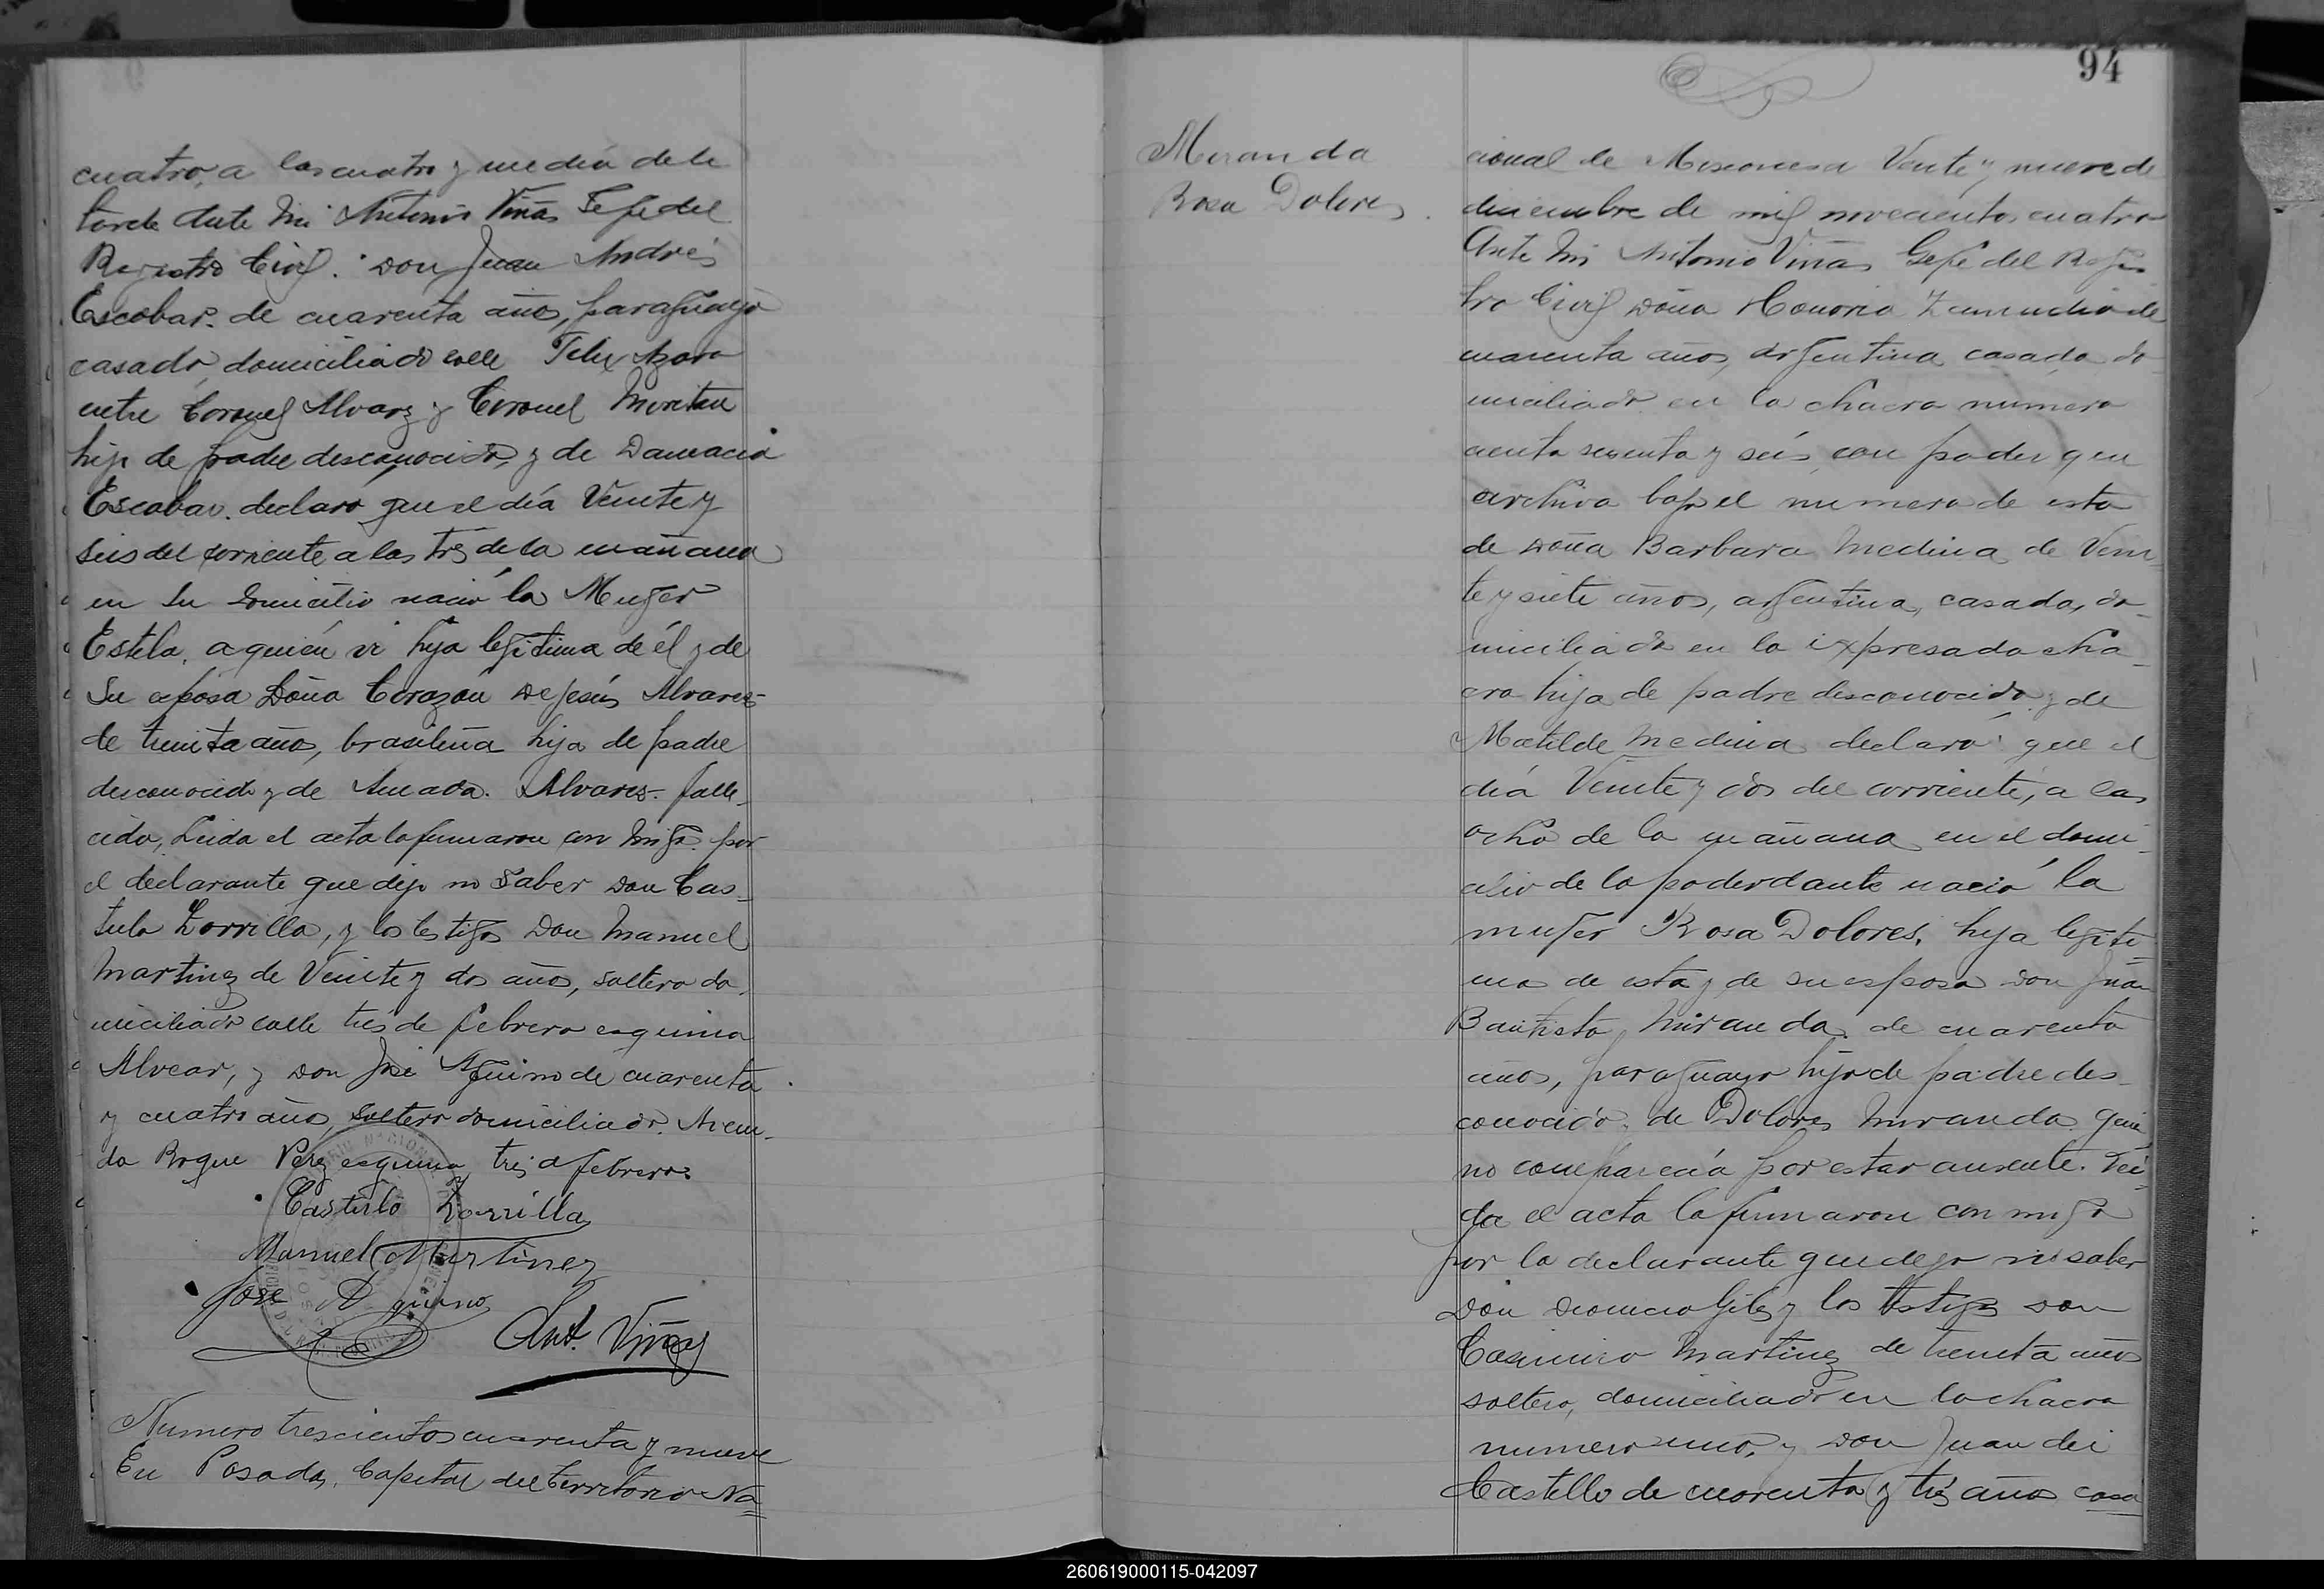 cuatro, a las cuatro y media de la
tarde Ante mi Antonio Viñas Jefe del
Registro Civil. Don Juan Andrés
Escobar. de cuarenta años, paraguayo
casado, domiciliado calle Felix Azara
entre Coronel Alvarez y Coronel
hijo de padre desconocido, y de Damacia
Escobar. declaró que el día Veinte y
seis del corriente a las tres de la mañana
en su domicilio nació la Muger
Estela, a quién vi hija legitima de él y de
su esposa Doña Corazón De Jesús Alvarez
de treinta años, brasileña hija de padre
desconocido y de Amada. Alvarez. falle-
cida, Leida el acta la firmaron con migo. por
el declarante que dijo no saber Don Cas-
tulo Zorrilla, y los testigos Don Manuel
Martinez de Veinte y dos años, soltero do-
miciliado calle tres de febrero esquina
Alvear, y Don José Aquino de cuarenta
y cuatro años, soltero domiciliado. Aveni-
da Roque Perez esquina tres d febrero.
Castulo Zorrilla
Manuel Martinez
Jose Aquino
Ant. Viñas
Numero trescientos cuarenta y nueve
En Posadas, Capital del territorio Na
94
Miranda
Rosa Dolores
cional de Misiones a Veinte y nueve de
diciembre de mil novecientos cuatro
Ante mi Antonio Viñas Gefe del Regis
tro Civil Doña Honoria Zamudio de
cuarenta años, argentina casada do-
miciliada en la chacra numero
ciento sesenta y seis con poder que
archivo bajo el numero de esta
de Doña Barbara Medina de Vein
te y siete años, argentina, casada, do-
miciliada en la expresada cha-
cra hija de padre desconocido y de
Matilde Medina declaró que el
día Veinte y dos del corriente, a las
ocho de la mañana en el domi-
cilio de la poderdante nació la
muger Rosa Dolores, hija legiti
ma de esta y de su esposo Don Juan
Bautista Miranda de cuarenta
años, paraguayo hijo de padre des-
conocido, de Dolores Miranda que
no comparecía por estar ausente. Lei
da el acta la firmaron con migo
por la declarante que dejo no saber
Don Dionicio Gile y los testigos Don
Casimiro Martinez de treinta años
soltero, domiciliado en la chacra
numero uno, y Don Juan dei
Castello de cuarenta y tres años casa
260619000115-042097